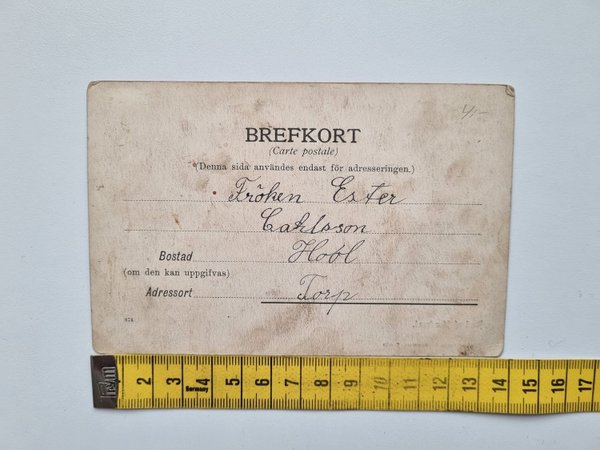 4/-
BREFKORT
(Carte postale)
(Denna sida användes endast för adresseringen.)
Fröken Ester
Carlsson
Bostad
(om den kan uppgifvas)
Adressort Torp
2 3 4 Germany 5 6 7 8 9 10 11 12 13 14 15 16 17